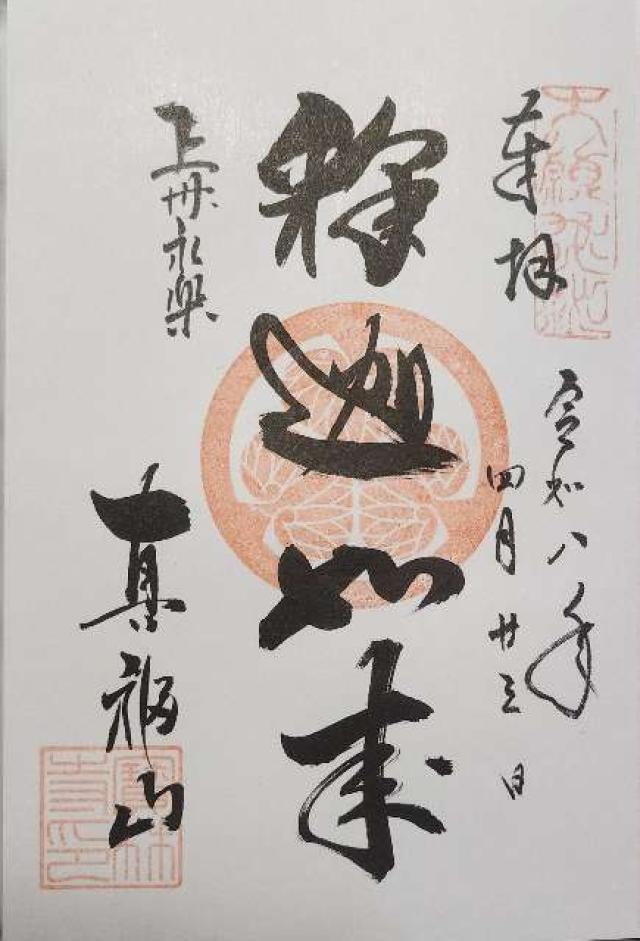 奉拝
令和八年
四月廿三日
釋迦如来
上州永楽
真福山
寶林寺印